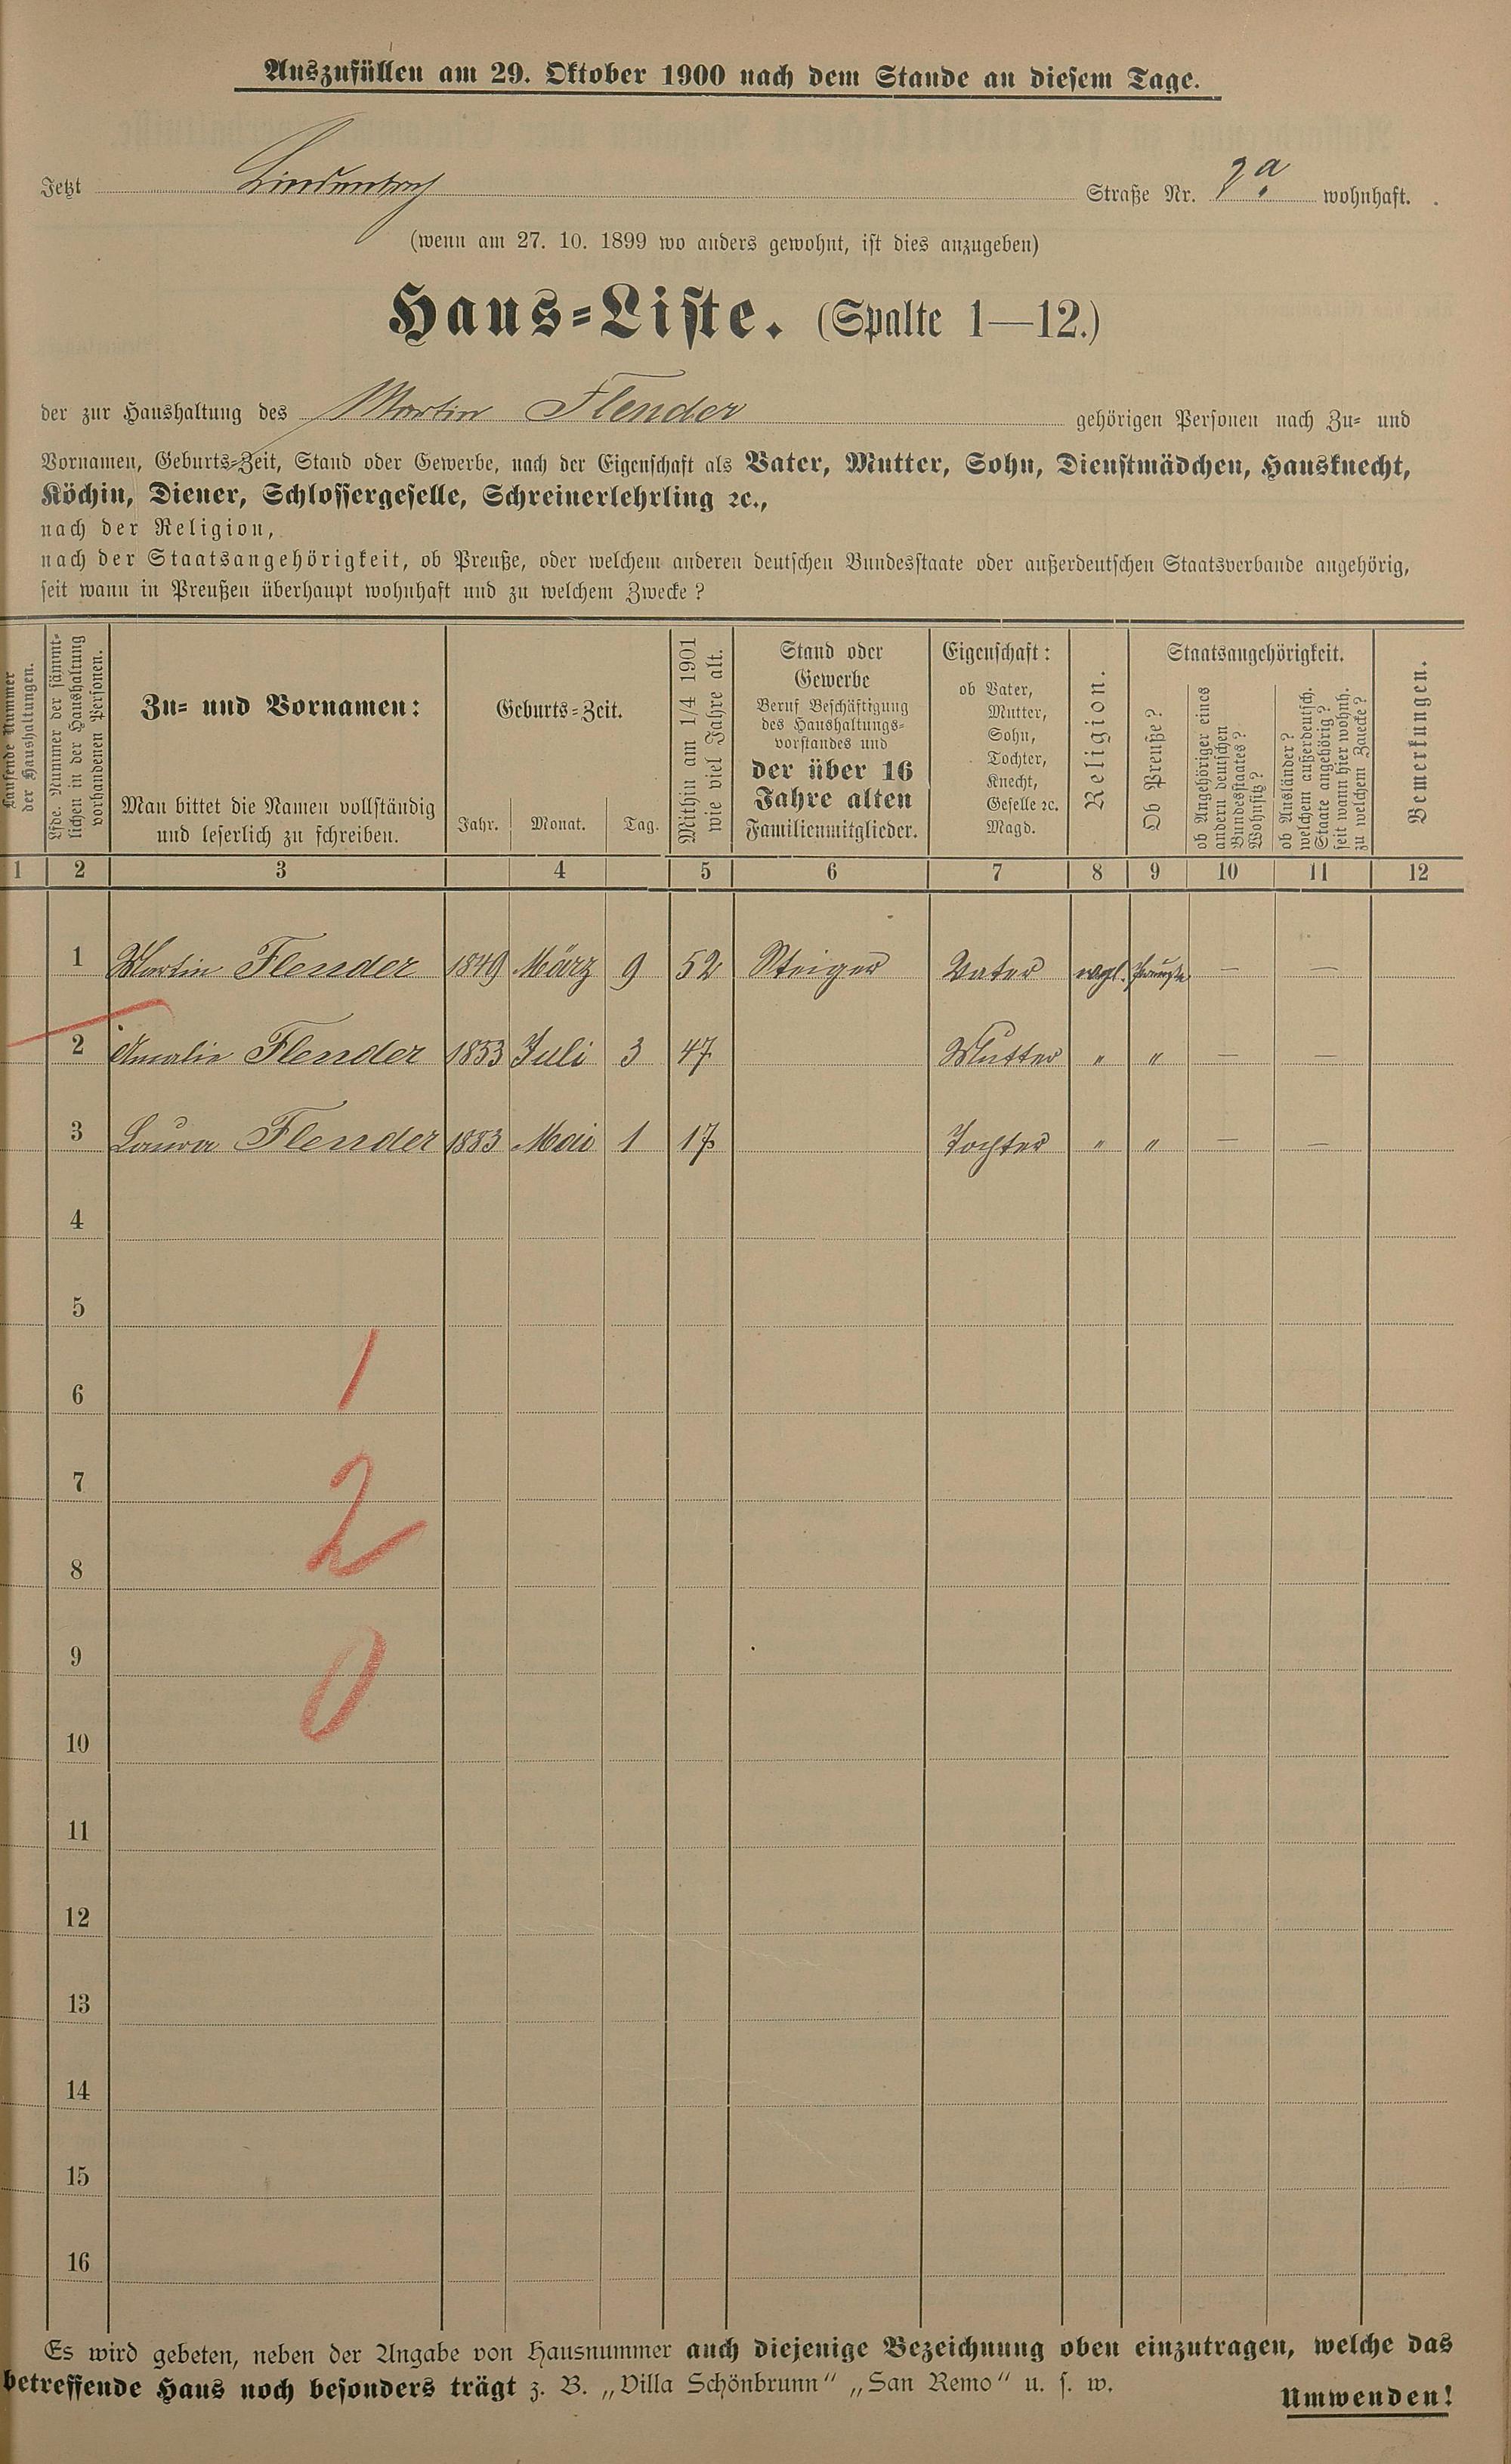 Auszufüllen am 29. Oktober 1900 nach dem Stande an diesem Tage.
Jetzt Lindenbach Straße Nr. 2a wohnhaft.
(wenn am 27. 10. 1899 wo anders gewohnt, ist dies anzugeben)
Haus-Liste. (Spalte 1—12.)
der zur Haushaltung des Martin Flender gehörigen Personen nach Zu- und
Vornamen, Geburts-Zeit, Stand oder Gewerbe, nach der Eigenschaft als Vater, Mutter, Sohn, Dienstmädchen, Hausknecht,
Köchin, Diener, Schlossergeselle, Schreinerlehrling ꝛc.,
nach der Religion,
nach der Staatsangehörigkeit, ob Preuße, oder welchem anderen deutschen Bundesstaate oder außerdeutschen Staatsverbande angehörig,
seit wann in Preußen überhaupt wohnhaft und zu welchem Zwecke?
Laufende Nummer
der Haushaltungen.
Lfde. Nummer der sämmt-
lichen in der Haushaltung
vorhandenen Personen.
Zu- und Vornamen:
Man bittet die Namen vollständig
und leserlich zu schreiben.
Geburts-Zeit.
Jahr. Monat. Tag.
Mithin am 1/4 1901
wie viel Jahre alt.
Stand oder
Gewerbe
Beruf Beschäftigung
des Haushaltungs-
vorstandes und
der über 16
Jahre alten
Familienmitglieder.
Eigenschaft:
ob Vater,
Mutter,
Sohn,
Tochter,
Knecht,
Geselle ꝛc.
Magd.
Religion.
Staatsangehörigkeit.
Ob Preuße?
ob Angehöriger eines
andern deutschen
Bundesstaates?
Wohnsitz?
ob Ausländer?
welchem außerdeutsch.
Staate angehörig?
seit wann hier wohnh.
zu welchem Zwecke?
Bemerkungen.
1 2 3 4 5 6 7 8 9 10 11 12
1 Martin Flender 1849 März 9 52 Steiger Vater evgl. Preuße — —
2 Amalie Flender 1853 Juli 3 47 Mutter " " — —
3 Laura Flender 1883 Mai 1 17 Tochter " " — —
4
5
1
6
7
2
8
9
0
10
11
12
13
14
15
16
Es wird gebeten, neben der Angabe von Hausnummer auch diejenige Bezeichnung oben einzutragen, welche das
betreffende Haus noch besonders trägt z. B. „Villa Schönbrunn" „San Remo" u. s. w.
Umwenden!